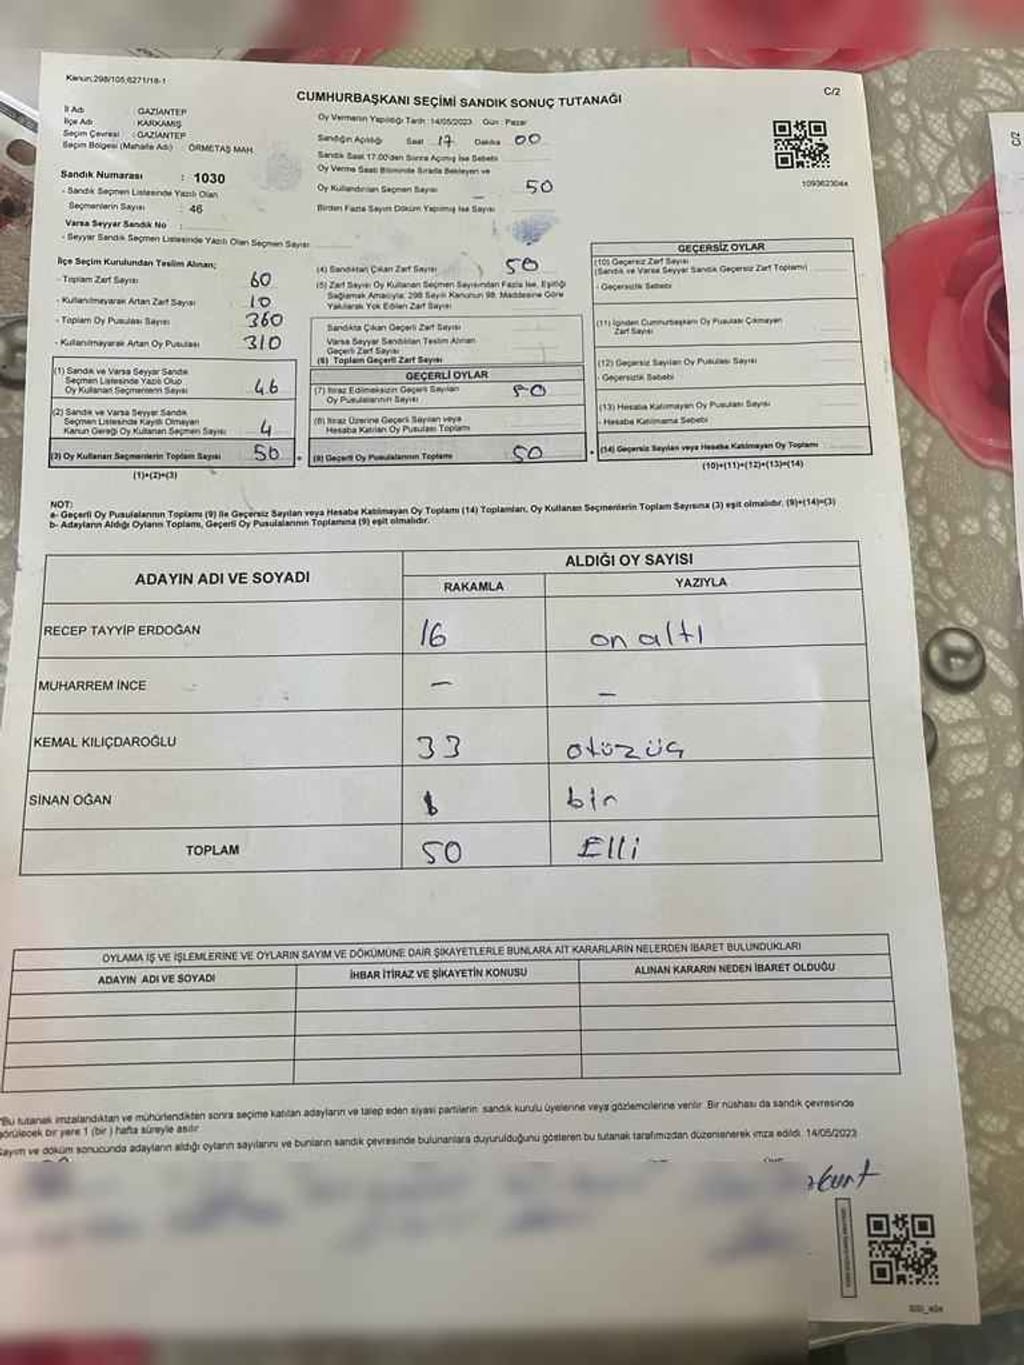 Kanun:298/105;6271/18-1
C/2
CUMHURBAŞKANI SEÇİMİ SANDIK SONUÇ TUTANAĞI
İl Adı : GAZİANTEP
İlçe Adı : KARKAMIŞ
Seçim Çevresi : GAZİANTEP
Seçim Bölgesi (Mahalle Adı) : ÖRMETAŞ MAH.
Sandık Numarası : 1030
- Sandık Seçmen Listesinde Yazılı Olan
Seçmenlerin Sayısı : 46
Varsa Seyyar Sandık No :
- Seyyar Sandık Seçmen Listesinde Yazılı Olan Seçmen Sayısı
Oy Vermenin Yapıldığı Tarih : 14/05/2023 Gün : Pazar
Sandığın Açıldığı Saat 17 Dakika 00
Sandık Saat 17.00'den Sonra Açılmış İse Sebebi
Oy Verme Saati Bitiminde Sırada Bekleyen ve
Oy Kullandırılan Seçmen Sayısı 50
Birden Fazla Sayım Döküm Yapılmış İse Sayısı
1093623044
İlçe Seçim Kurulundan Teslim Alınan;
- Toplam Zarf Sayısı 60
- Kullanılmayarak Artan Zarf Sayısı 10
- Toplam Oy Pusulası Sayısı 360
- Kullanılmayarak Artan Oy Pusulası 310
(1) Sandık ve Varsa Seyyar Sandık
Seçmen Listesinde Yazılı Olup
Oy Kullanan Seçmenlerin Sayısı 46
(2) Sandık ve Varsa Seyyar Sandık
Seçmen Listesinde Kayıtlı Olmayan
Kanun Gereği Oy Kullanan Seçmen Sayısı 4
(3) Oy Kullanan Seçmenlerin Toplam Sayısı 50
(1)+(2)=(3)
(4) Sandıktan Çıkan Zarf Sayısı 50
(5) Zarf Sayısı Oy Kullanan Seçmen Sayısından Fazla İse, Eşitliği
Sağlamak Amacıyla; 298 Sayılı Kanunun 98. Maddesine Göre
Yakılarak Yok Edilen Zarf Sayısı
Sandıkta Çıkan Geçerli Zarf Sayısı
Varsa Seyyar Sandıktan Teslim Alınan
Geçerli Zarf Sayısı
(6) Toplam Geçerli Zarf Sayısı
GEÇERLİ OYLAR
(7) İtiraz Edilmeksizin Geçerli Sayılan
Oy Pusulalarının Sayısı 50
(8) İtiraz Üzerine Geçerli Sayılan veya
Hesaba Katılan Oy Pusulası Toplamı
(9) Geçerli Oy Pusulalarının Toplamı 50
GEÇERSİZ OYLAR
(10) Geçersiz Zarf Sayısı
(Sandık ve Varsa Seyyar Sandık Geçersiz Zarf Toplamı)
- Geçersizlik Sebebi
(11) İçinden Cumhurbaşkanı Oy Pusulası Çıkmayan
Zarf Sayısı
(12) Geçersiz Sayılan Oy Pusulası Sayısı
- Geçersizlik Sebebi
(13) Hesaba Katılmayan Oy Pusulası Sayısı
- Hesaba Katılmama Sebebi
(14) Geçersiz Sayılan veya Hesaba Katılmayan Oy Toplamı
(10)+(11)+(12)+(13)=(14)
NOT:
a- Geçerli Oy Pusulalarının Toplamı (9) ile Geçersiz Sayılan veya Hesaba Katılmayan Oy Toplamı (14) Toplamları, Oy Kullanan Seçmenlerin Toplam Sayısına (3) eşit olmalıdır. (9)+(14)=(3)
b- Adayların Aldığı Oyların Toplamı, Geçerli Oy Pusulalarının Toplamına (9) eşit olmalıdır.
ADAYIN ADI VE SOYADI
ALDIĞI OY SAYISI
RAKAMLA YAZIYLA
RECEP TAYYİP ERDOĞAN 16 on altı
MUHARREM İNCE — —
KEMAL KILIÇDAROĞLU 33 otüzüç
SİNAN OĞAN 1 bir
TOPLAM 50 Elli
OYLAMA İŞ VE İŞLEMLERİNE VE OYLARIN SAYIM VE DÖKÜMÜNE DAİR ŞİKAYETLERLE BUNLARA AİT KARARLARIN NELERDEN İBARET BULUNDUKLARI
ADAYIN ADI VE SOYADI İHBAR İTİRAZ VE ŞİKAYETİN KONUSU ALINAN KARARIN NEDEN İBARET OLDUĞU
*Bu tutanak imzalandıktan ve mühürlendikten sonra seçime katılan adayların ve talep eden siyasi partilerin sandık kurulu üyelerine veya gözlemcilerine verilir. Bir nüshası da sandık çevresinde
görülecek bir yere 1 (bir) hafta süreyle asılır.
Sayım ve döküm sonucunda adayların aldığı oyların sayılarını ve bunların sandık çevresinde bulunanlara duyurulduğunu gösteren bu tutanak tarafımızdan düzenlenerek imza edildi. 14/05/2023
C/2